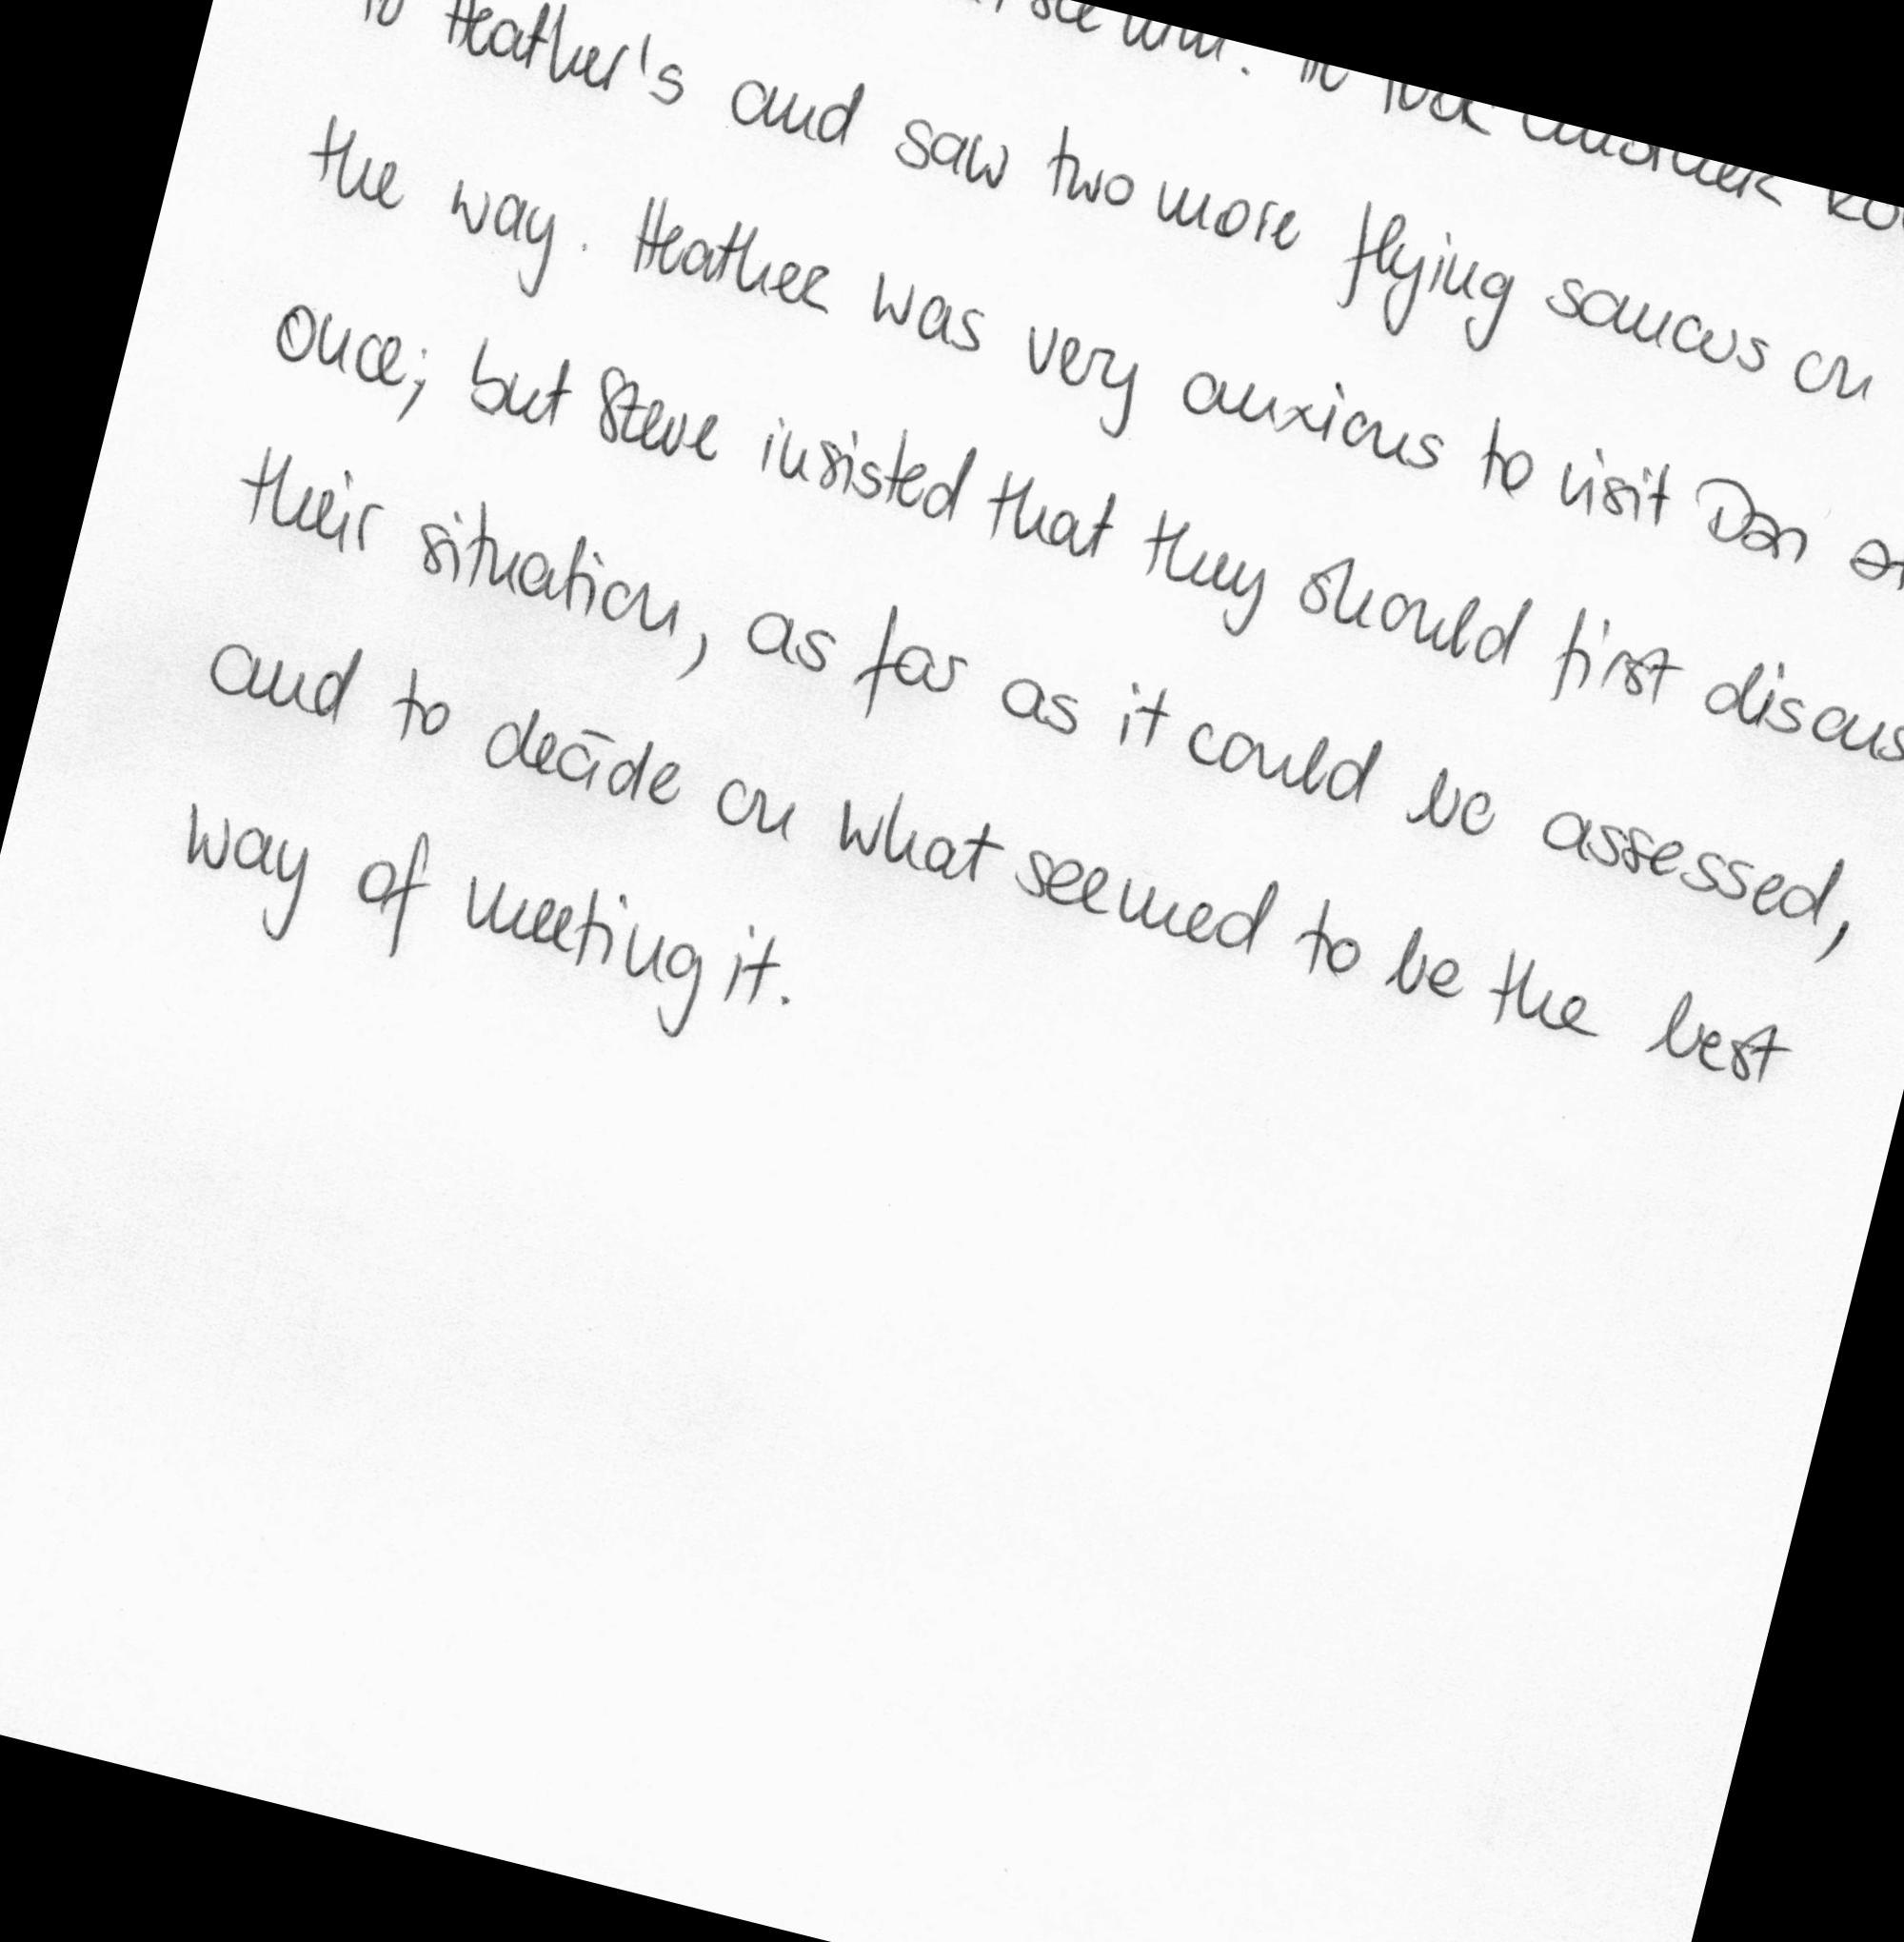 see him. He took another
to Heather's and saw two more flying saucers on
the way. Heather was very anxious to visit Dan
once; but Steve insisted that they should first discuss
their situation, as far as it could be assessed,
and to decide on what seemed to be the best
way of meeting it.